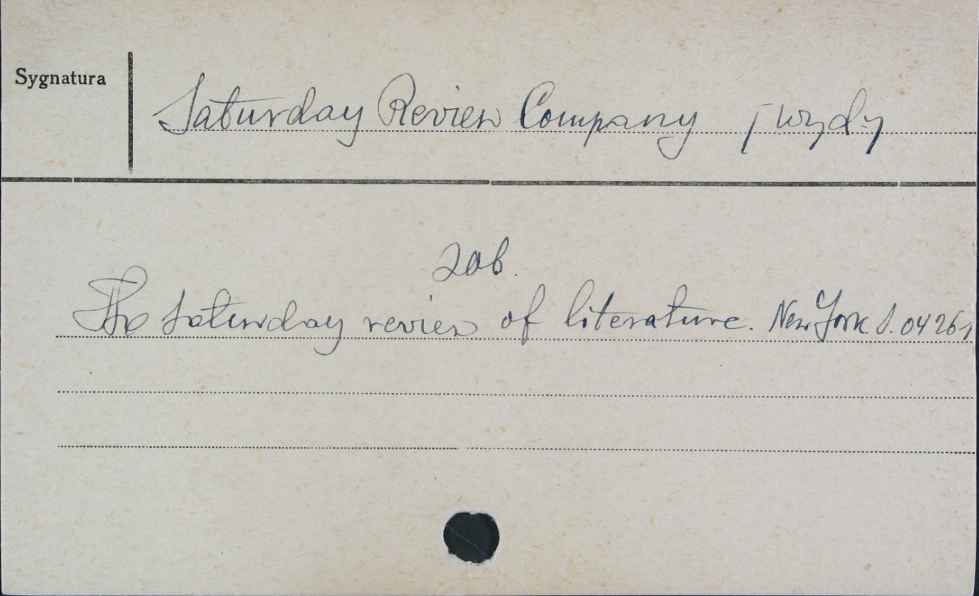 Sygnatura
Saturday Review Company /wyd./
zob.
The Saturday review of literature. New York S. 04261